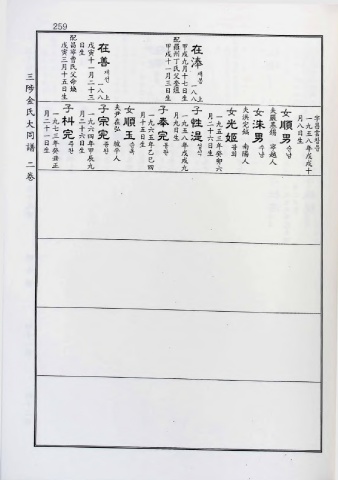 259
字昌富창부
一九五八年戊戌十
月八日生
女順男순남
夫嚴基錫 寧越人
女洙男수남
夫洪完鎬 南陽人
女光姬광희
一九五三年癸卯六
月二十六日生
子
一九五八年戊戌九
月九日生
在
甲戌九月十七日生
配羅州丁氏父奎煥
甲戌十一月三日生
子奉完봉완
一九六五年乙巳四
月十五日生
女順玉순옥
夫尹在弘 坡平人
子宗完종완
一九六四年甲辰九
月二十三日生
在善재선
戊寅十一月二十三
日生
配昌寧曺氏父命煥
戊寅三月十五日生
子
一九七三年癸丑正
月二十一日生
三陟金氏大同譜 二卷